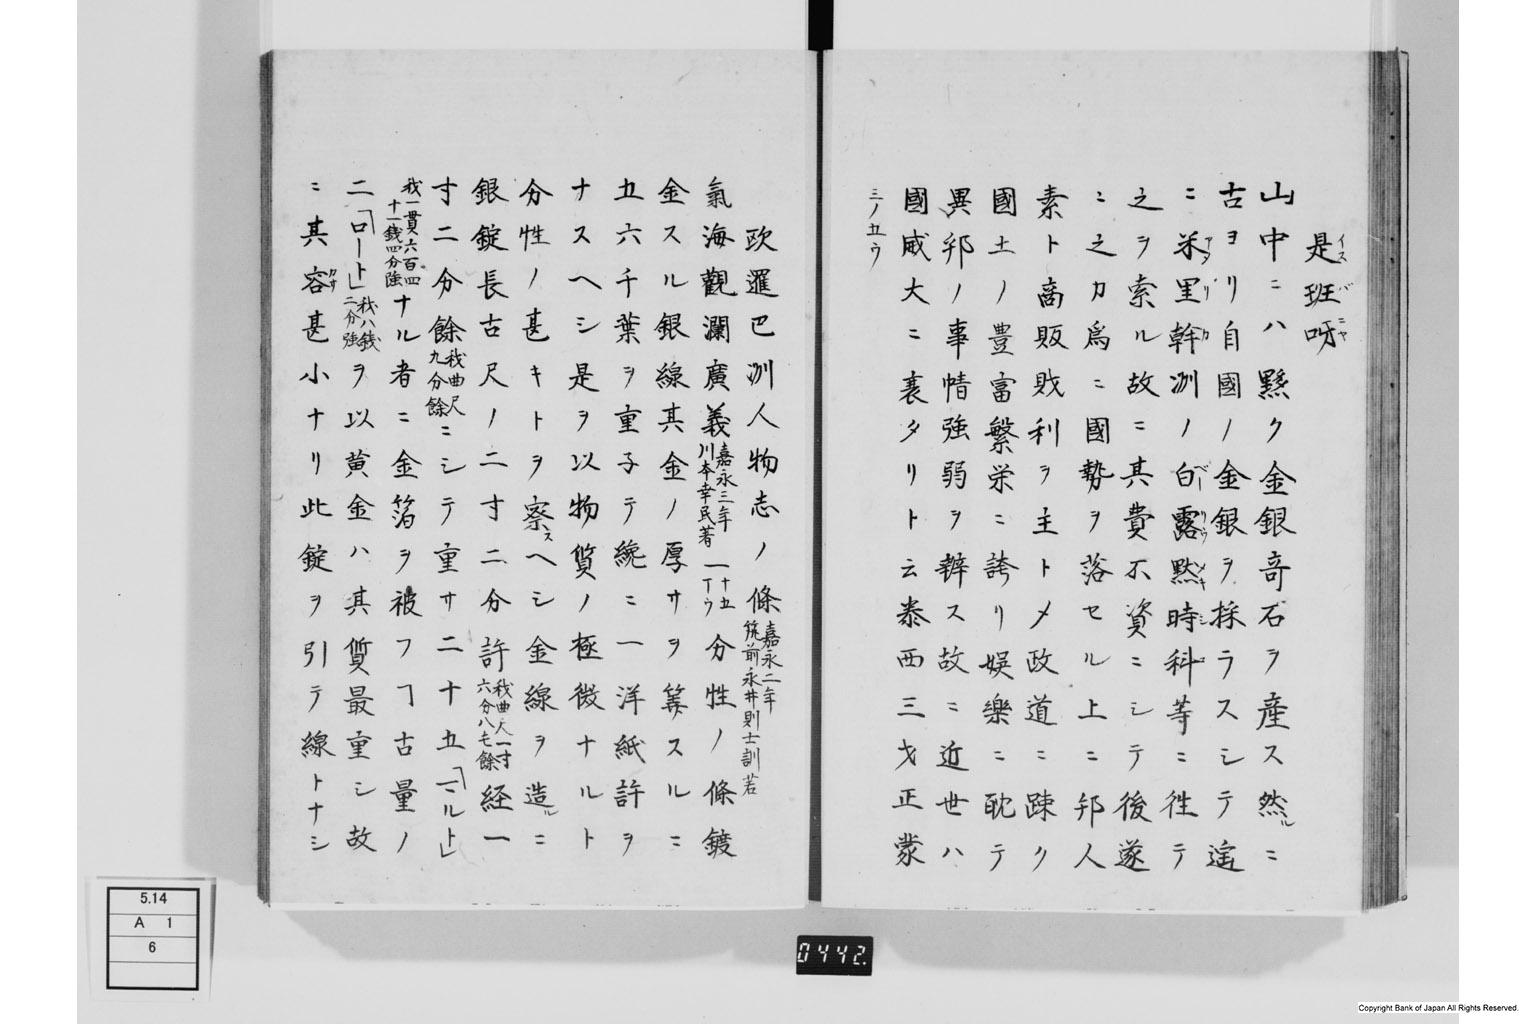 是班呀
イスバニヤ
山中ニハ黟ク金銀奇石ヲ産ス然ルニ
古ヨリ自國ノ金銀ヲ採ラスシテ遙
ニ米里幹洲ノ白露黙時科等ニ徃テ
之ヲ索ル故ニ其費不資ニシテ後遂
ニ之カ爲ニ國勢ヲ落セル上ニ邦人
素ト商販敗利ヲ主トメ政道ニ疎ク
國土ノ豊富繁栄ニ誇リ娯樂ニ耽テ
異邦ノ事情強弱ヲ辨ス故ニ近世ハ
國威大ニ衰タリト云泰西三才正蒙
三ノ五ウ
欧邏巴洲人物志ノ條 嘉永二年 筑前永井則士訓若
氣海觀瀾廣義 嘉永三年 川本幸民著 一 十五丁ウ 分性ノ條鍍
金スル銀線其金ノ厚サヲ筭スルニ
五六千葉ヲ重子テ纔ニ一洋紙許ヲ
ナスヘシ是ヲ以物質ノ極微ナルト
分性ノ甚キトヲ察スヘシ金線ヲ造ルニ
銀錠長古尺ノ二寸二分許 我曲尺一寸六分八毛餘 経一
寸二分餘 我曲尺九分餘 ニシテ重サ二十五「マルト」
我一貫六百四十一銭四分強 ナル者ニ金箔ヲ被フフ古量ノ
二「ロート」 我八銭二分強 ヲ以黄金ハ其質最重シ故
ニ其容甚小ナリ此錠ヲ引テ線トナシ
5.14
A 1
6
0442.
Copyright Bank of Japan All Rights Reserved.